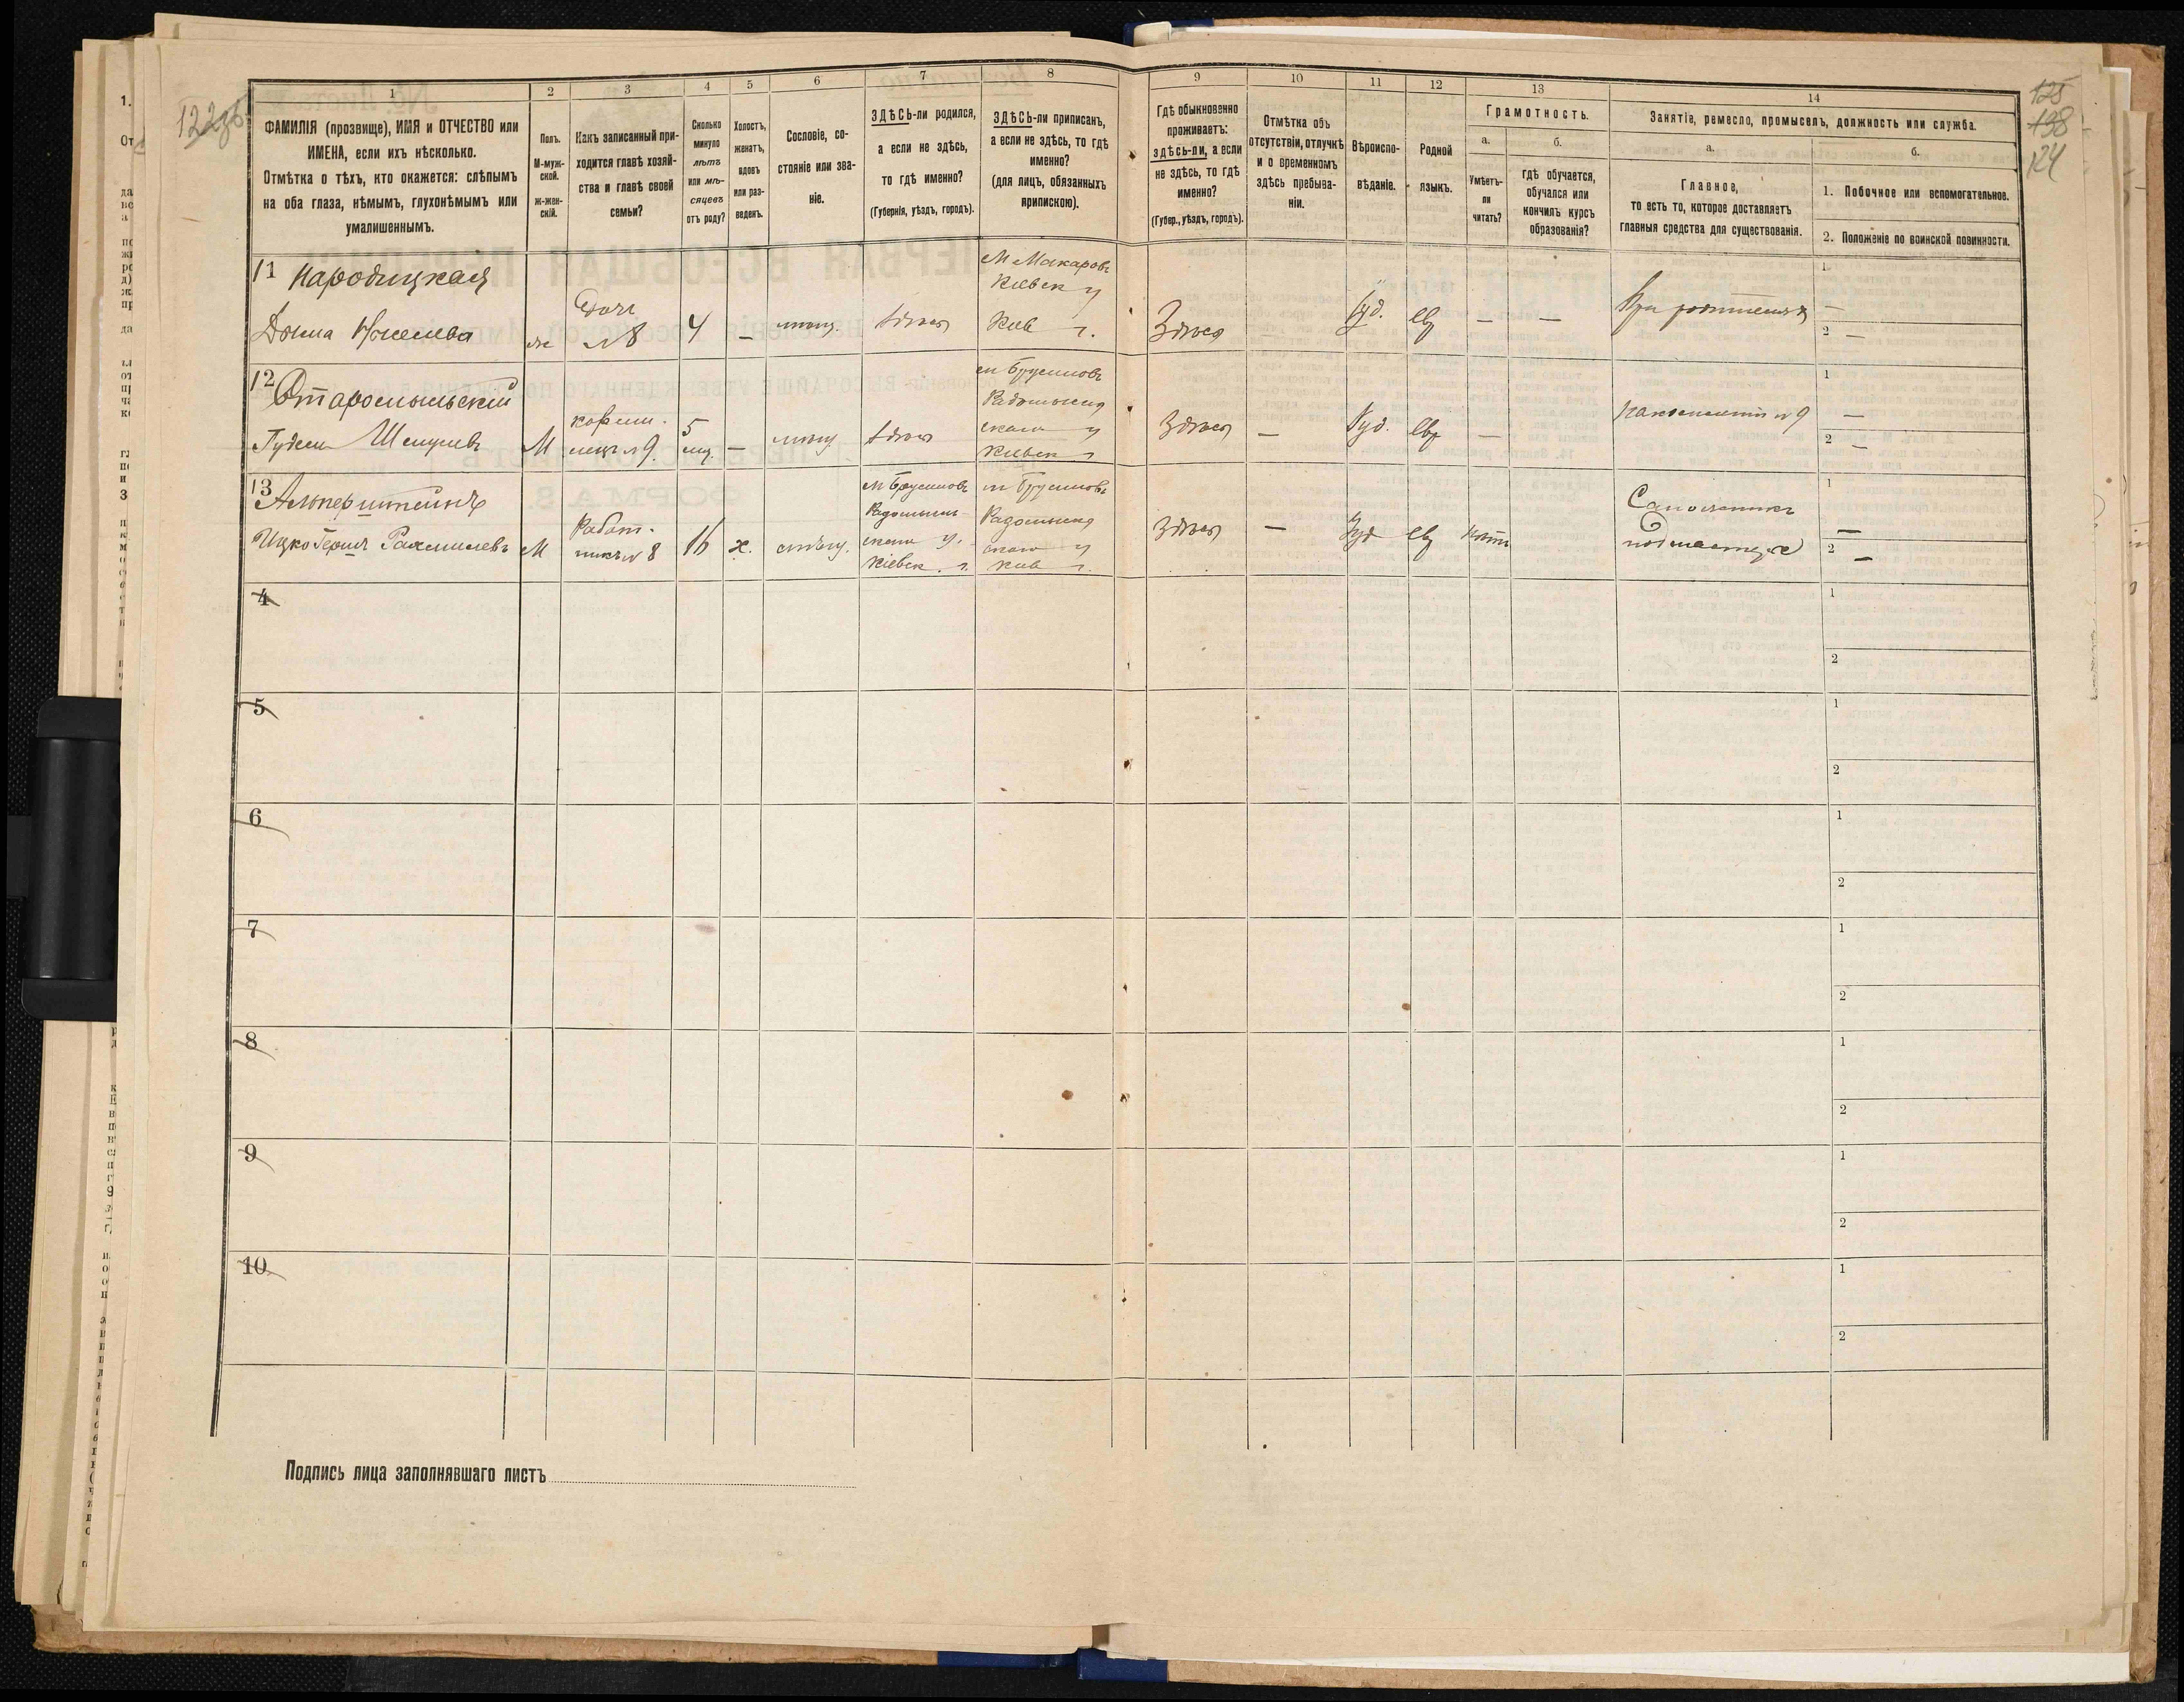 1 2 3 4 5 6 7 8 9 10 11 12 13 14
ФАМИЛІЯ (прозвище), ИМЯ и ОТЧЕСТВО или
ИМЕНА, если ихъ нѣсколько.
Отмѣтка о тѣхъ, кто окажется: слѣпымъ
на оба глаза, нѣмымъ, глухонѣмымъ или
умалишеннымъ.
Полъ.
М-муж-
ской.
Ж-жен-
скій.
Какъ записанный при-
ходится главѣ хозяй-
ства и главѣ своей
семьи?
Сколько
минуло
лѣтъ
или мѣ-
сяцевъ
отъ роду?
Холостъ,
женатъ,
вдовъ
или раз-
веденъ.
Сословіе, со-
стояніе или зва-
ніе.
ЗДѢСЬ-ли родился,
а если не здѣсь,
то гдѣ именно?
(Губернія, уѣздъ, городъ).
ЗДѢСЬ-ли приписанъ,
а если не здѣсь, то гдѣ
именно?
(для лицъ, обязанныхъ
припискою).
Гдѣ обыкновенно
проживаетъ:
здѣсь-ли, а если
не здѣсь, то гдѣ
именно?
(Губер., уѣздъ, городъ).
Отмѣтка объ
отсутствіи, отлучкѣ
и о временномъ
здѣсь пребыва-
ніи.
Вѣроиспо-
вѣданіе.
Родной
языкъ.
Грамотность.
а.
Умѣетъ-
ли
читать?
б.
гдѣ обучается,
обучался или
кончилъ курсъ
образованія?
Занятіе, ремесло, промыселъ, должность или служба.
а.
Главное,
то есть то, которое доставляетъ
главныя средства для существованія.
б.
1. Побочное или вспомогательное.
2. Положеніе по воинской повинности.
125
138
124
11 Народицкая
ж
Дочь
№ 8
4
—
здѣсь
М Макаровъ
Кіевск у
Кіев г.
Здѣсь
Іуд.
евр
—
—
При родителяхъ
1 —
2 —
12 Старосельскій
Шмулевъ
М
№ 9.
5
—
здѣсь
м Брусиловъ
Кіевск г
Здѣсь
—
Іуд.
евр
—
№ 9
1 —
2 —
13 Альперштейнъ
Ицко Гершъ Рахмилевъ
М
Работ-
никъ № 8
16
х.
М Брусиловъ
Радомысль-
скаго у.
Кіевск. г.
м Брусиловъ
скаго у
Кіев г.
Здѣсь
—
Іуд
евр
нѣтъ
Сапожникъ
подмастерье
1 —
2 —
4
1
2
5
1
2
6
1
2
7
1
2
8
1
2
9
1
2
10
1
2
Подпись лица заполнявшаго листъ